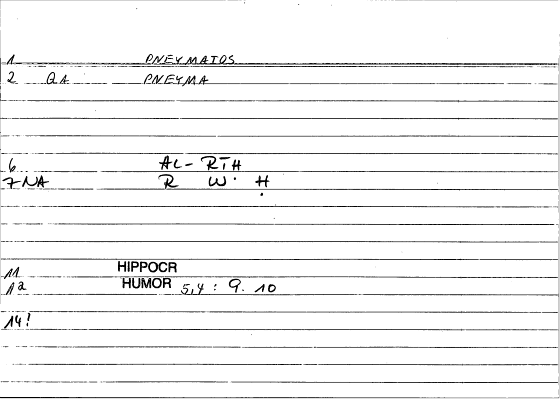 1 PNEYMATOS
2 QA PNEYMA
6 AL-RTH
7 NA R W. Ḥ
11 HIPPOCR
12 HUMOR 5,4 : 9. 10
14!